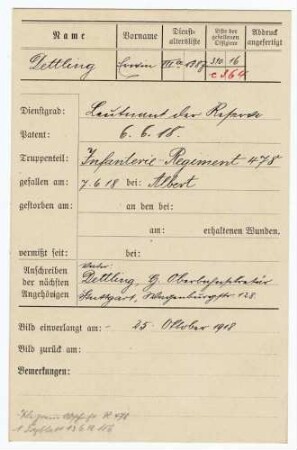 Name Vorname Dienst- altersliste Liste der gefallenen Offiziere Abdruck angefertigt
Dettling
Dienstgrad: Leutnant der Reserve
Patent: 6. 6. 18.
Truppenteil: Infanterie Regiment 478
gefallen am: 7. 6. 18 bei: Albert
gestorben am: an den bei:
am: erhaltenen Wunden.
vermißt seit: bei:
Anschreiben der nächsten Angehörigen
Vater:
Dettling, G. Oberbahnsekretär
Stuttgart, Wagenburgstr 128.
Bild einverlangt am: 25. Oktober 1918
Bild zurück am:
Bemerkungen: